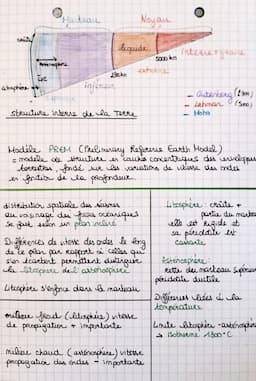 Manteau
Noyau
croûte
liquide
Interne = graine
5000 km
externe
inférieur
Gutenberg
Lehman
Moho
structure interne de la Terre
Modèle PREM (Preliminary Reference Earth Model)
= modèle de structure en couches concentriques des enveloppes
terrestres, fondé sur les variations de vitesse des ondes
en fonction de la profondeur.
distribution spatiale des séismes
au voisinage des fosses océaniques
se fait selon un plan incliné
Différences de vitesse des ondes le long
de ce plan par rapport à celles qui
s'en écartent permettent distinguer
la lithosphère de l'asthénosphère
Lithosphère s'enfonce dans le manteau
milieu froid (lithosphère) vitesse
de propagation + importante
milieu chaud (asthénosphère) vitesse
propagation des ondes - importante
Lithosphère: croûte +
partie du manteau
elle est rigide et
sa péridotite est
cassante
Asthénosphère:
reste du manteau supérieur
péridotite ductile
Différences liées à la
température
Limite lithosphère-asthénosphère
→ Isotherme 1300°C